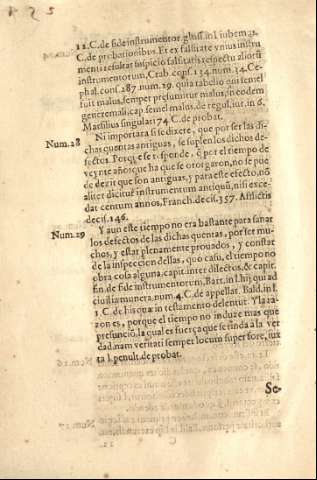 11. C. de fide instrumentor. gloss. in l. iubem⁹ 22.
C. de probationibus. Et ex falsitate vnius instru
menti resultat suspicio falsitatis respectu aliorū
instrumentorum, Crab. cons. 134. num. 34. Ce-
phal. cons. 287. num. 29. quia tabelio qui semel
fuit malus, semper presumitur malus, in eodem
genere mali, cap. semel malus, de regul. iur. in 6.
Marsilius singulari 74. C. de probat.
Num. 28 Ni importara si se dixere, que por ser las di-
chas quentas antiguas, se suplen los dichos de-
fectos. Porq̃ se respõde, q̃ por el tiempo de
veynte años que ha que se otorgaron, no se pue
de dezir que son antiguas, y para este efecto, nõ
aliter dicitur instrumentum antiquū, nisi exce-
dat centum annos, Franch. decis. 357. Afflictis
decis. 146.
Num. 29 Y aun este tiempo no era bastante para sanar
los defectos de las dichas quentas, por ser mu-
chos, y estar plenamente prouados, y constar
de la inspeccion dellas, quo casu, el tiempo no
obra cosa alguna, capit. inter dilectos, & capit.
fin. de fide instrumentorum, Batt. in l. hi qui ad
ciuilia munera, num. 4. C. de appellat. Bald. in l.
1. C. de his quæ in testamento delentur. Y la ra-
zon es, porque el tiempo no induze mas que
presunciō, la qual es fuerça que se rinda a la ver
dad, nam veritati semper locum superfore, iux
ta l. penult. de probat.
Se-